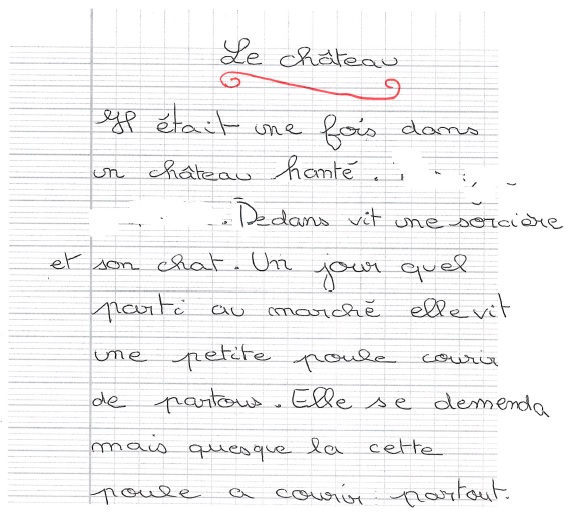 Le château
Il était une fois dans
un château hanté.
. Dedans vit une sorcière
et son chat. Un jour quel
parti au marché elle vit
une petite poule courir
de partous. Elle se demenda
mais quesque la cette
poule a courir partout.